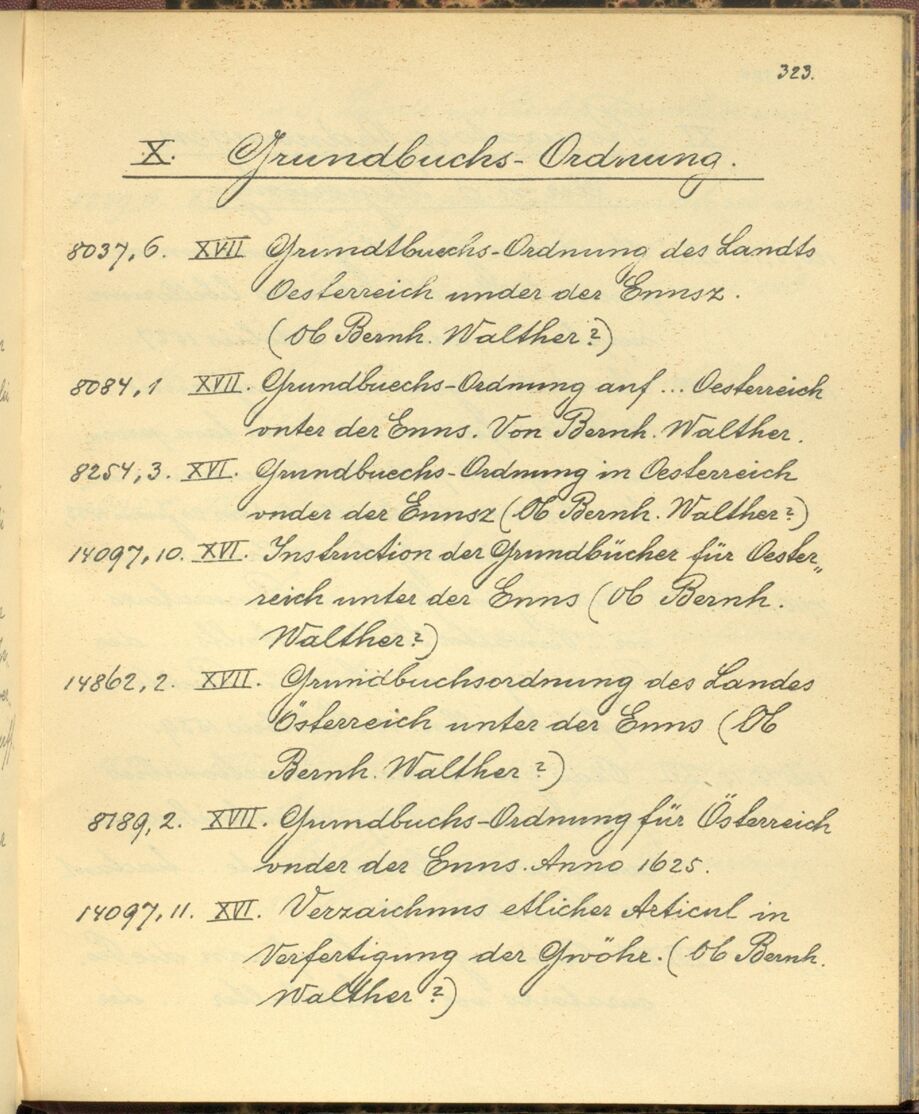 323.
X. Grundbuchs-Ordnung.
8037, 6. XVII Grundtbuechs-Ordnung des Landts
Oesterreich under der Ennsz.
(Ob Bernh. Walther?)
8084, 1 XVII. Grundbuechs-Ordnung auf ... Oesterreich
vnter der Enns. Von Bernh. Walther.
8254, 3. XVI. Grundbuechs-Ordnung in Oesterreich
vnder der Ennsz (Ob Bernh. Walther?)
14097, 10. XVI. Instruction der Grundbücher für Oester„
reich unter der Enns (Ob Bernh.
Walther?)
14862, 2. XVII. Grundbuchsordnung des Landes
Österreich unter der Enns (Ob
Bernh. Walther?)
8189, 2. XVII. Grundbuchs-Ordnung für Österreich
vnder der Enns. Anno 1625.
14097, 11. XVI. Verzaichnus etlicher Articul in
Verfertigung der Gwöhr. (Ob Bernh.
Walther?)